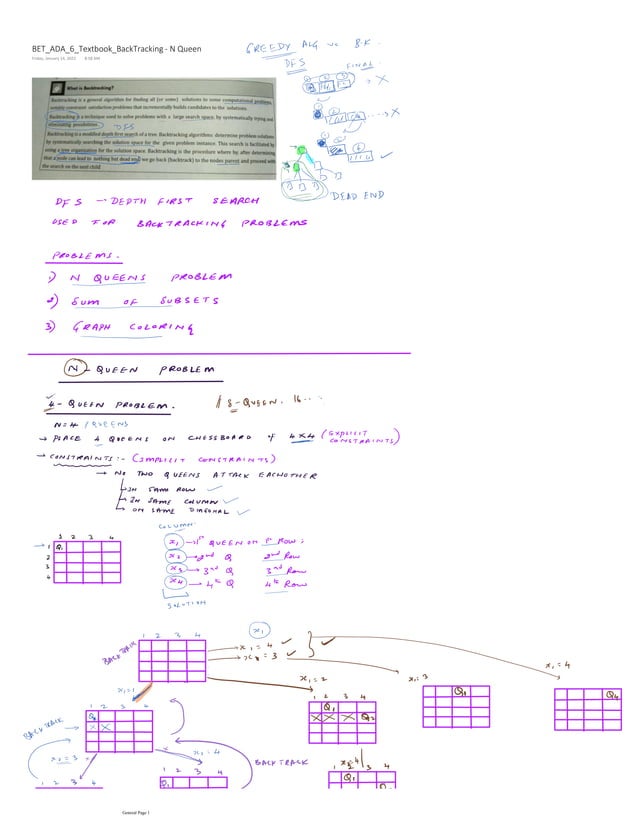 BET_ADA_6_Textbook_BackTracking - N Queen
Friday, January 14, 2022 8:58 AM
GREEDY ALG vs B.K.
DFS
FINAL
What is Backtracking?
Backtracking is a general algorithm for finding all (or some) solutions to some computational problem,
notably constraint satisfaction problems that incrementally builds candidates to the solutions.
Backtracking is a technique used to solve problems with a large search space, by systematically trying and
eliminating possibilities. DFS
Backtracking is a modified depth first search of a tree. Backtracking algorithms determine problem solutions
by systematically searching the solution space for the given problem instance. This search is facilitated by
using a tree organization for the solution space. Backtracking is the procedure where by, after determining
that a node can lead to nothing but dead end, we go back (backtrack) to the nodes parent and proceed with
the search on the next child
DEAD END
DFS → DEPTH FIRST SEARCH
USED FOR BACKTRACKING PROBLEMS
PROBLEMS.
1) N QUEENS PROBLEM
2) SUM OF SUBSETS
3) GRAPH COLORING
N - QUEEN PROBLEM
4 - QUEEN PROBLEM. // 8 - QUEEN. 16 ...
N=4 / QUEENS
→ PLACE 4 QUEENS ON CHESSBOARD of 4X4 (EXPLICIT CONSTRAINTS)
→ CONSTRAINTS :- (IMPLICIT CONSTRAINTS)
→ NO TWO QUEENS ATTACK EACHOTHER
→ IN SAME ROW ✓
→ IN SAME COLUMN ✓
→ ON SAME DIAGONAL ✓
COLUMN
1 2 3 4
→ 1 Q1
2
3
4
x1 → 1st QUEEN ON 1st ROW;
x2 → 2nd Q 2nd ROW
x3 → 3rd Q 3rd ROW
x4 → 4th Q 4th ROW
SOLUTION
x1
BACKTRACK
1 2 3 4
x1 = 4 ✓
x1 = 3 ✓
x1=1
x1=2
x1=3
x1=4
1 2 3 4
Q1
X X
BACKTRACK
1 2 3 4
Q1
X X X Q2
Q1
Q1
x2 = 3
x2 = 4
BACKTRACK
1 2 3 4
1 2 3 4
Q1
1 2 3 4
Q1
General Page 1